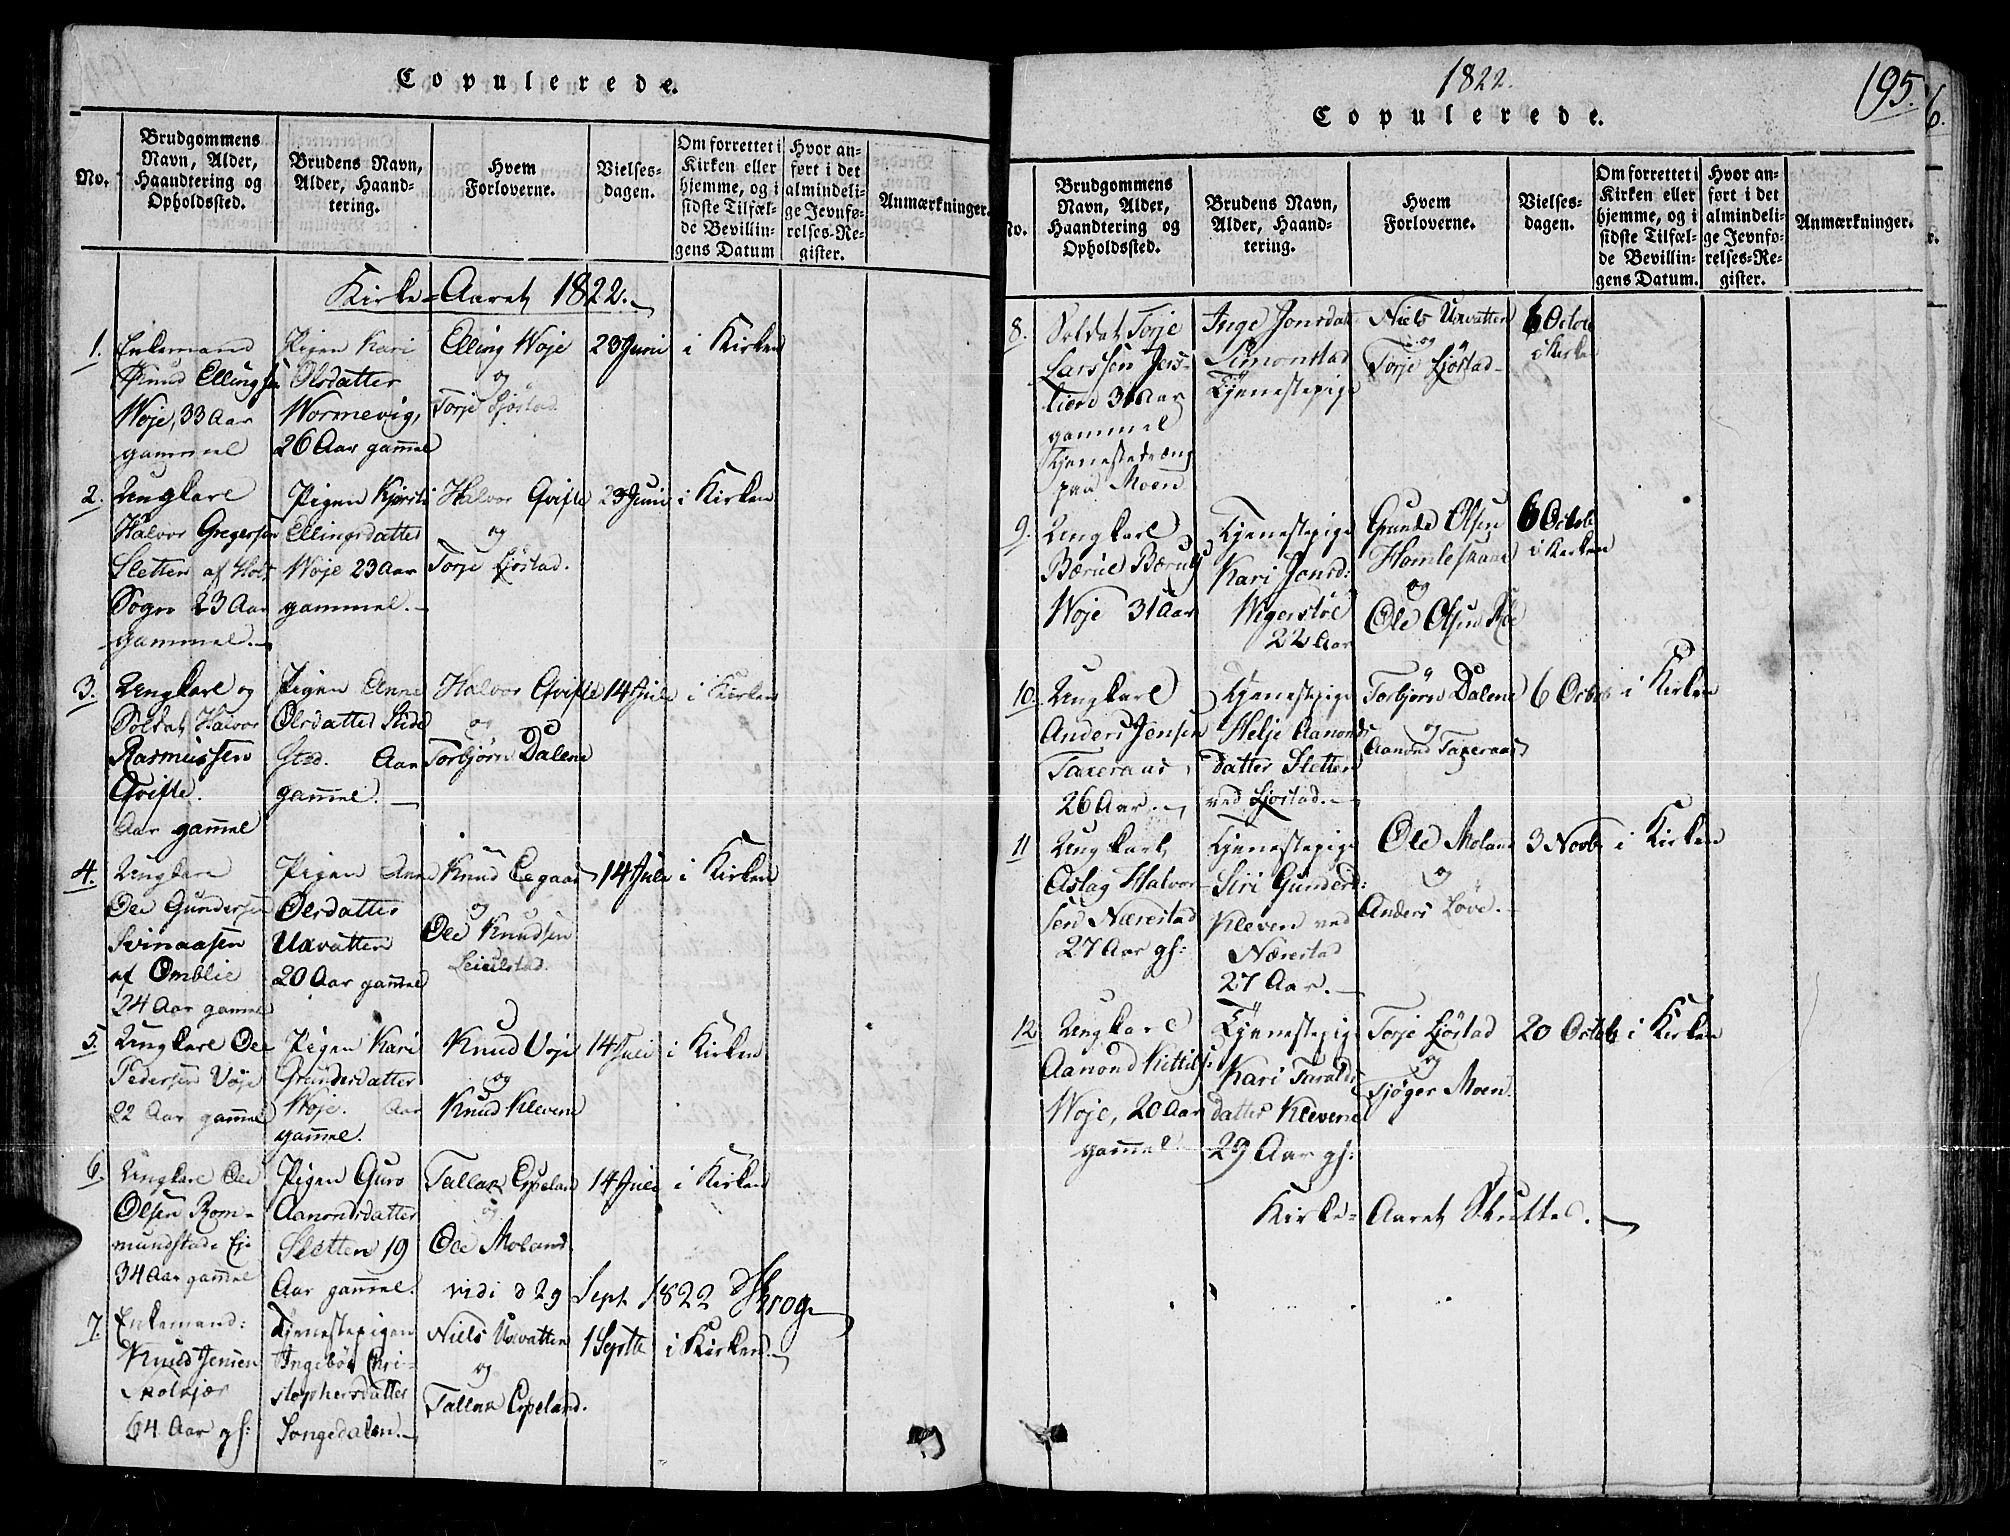 Copulerede.
No.
Brudgommens
Navn, Alder,
Haandtering og
Opholdssted.
Brudens Navn,
Alder, Haand-
tering.
Hvem
Forloverne.
Vielses-
dagen.
Om forrettet i
Kirken eller
hjemme, og i
sidste Tilfæl-
de Bevillin-
gens Datum
Hvor an-
ført i det
almindeli-
ge Jevnfø-
relses-Re-
gister.
Anmærkninger.
Kirke-Aaret 1822.
1.
Enkemand
Knud Ellingsen
Woje, 33 Aar
gammel
Pigen Kari
Olsdatter
Wormevig,
26 Aar gam̅el
Elling Woje
og
Torje Ljøstad.
23 Juni
i Kirken
2.
Ungkarl
Halvor Gregersen
Sletten af Holt
Sogn 23 Aar
gammel.
Pigen Kjersti
Ellingsdatter
Woje 23 Aar
gammel.
Halvor Qvifte
og
Torje Ljøstad.
23 Juni
i Kirken
3.
Ungkarl og
Soldat Halvor
Rasmussen
Qvifte.
Aar gam̅el
Pigen Anne
Olsdatter
sted. Aar
gam̅el.
Halvor Qvifte
og
Torbjørn Dalene
14 Juli
i Kirken
4.
Ungkarl
Ole Gundersen
Svinaasen
af Omblie
24 Aar gam̅el
Pigen Anne
Olsdatter
Uxvatten
20 Aar gam̅el
Knud
og
Ole Knudsen
14 Juli
i Kirken
5.
Ungkarl Ole
Pedersen Voje
22 Aar gam̅el
Pigen Kari
Gundersdatter
Woje. Aar
gam̅el.
Knud Voje
og
Knud Klevene
14 Juli
i Kirken
6.
Ungkarl Ole
Olsen Rom-
mundstad Eje
34 Aar gam̅el
Pigen Guro
Aanonsdatter
Sletten 19
Aar gam̅el.
Tallak Espeland
og
Ole Moland
14 Juli
i Kirken
vidi d 29 Sept 1822 Krog
7.
Enkemand:
Knud Jensen
64 Aar gl:
Tjenestepigen
Ingebor Chri-
stophersdatter
Songedalen.
Niels Uxvatten
og
Tallak Espeland.
1 Septb
i Kirken.
1822.
195.
Copulerede.
No.
Brudgommens
Navn, Alder,
Haandtering og
Opholdssted.
Brudens Navn,
Alder, Haand-
tering.
Hvem
Forloverne.
Vielses-
dagen.
Om forrettet i
Kirken eller
hjemme, og i
sidste Tilfæl-
de Bevillin-
gens Datum.
Hvor an-
ført i det
almindeli-
ge Jevnfø-
relses-Re-
gister.
Anmærkninger.
8.
Soldat Torje
Larssen
31 Aar
gammel
Tjenestedreng
paa Moen
Inge Jonsdat
Simonstad
Tjenestepige
Niels Uxvatten
og
Torje Ljøstad
6 Octob
i Kirken
9.
Ungkarl
Woje 31 Aar
Tjenestepige
Kari Jonsd:
Wigerstøl
22 Aar
Gunde Olsen
Homleskaar
og
Ole Olsen
6 Octob
i Kirken
10.
Ungkarl
Anders Jensen
Taxeraas
26 Aar.
Tjenestepige
Helje Aanonds
datter Sletten
ved Ljøstad.
Torbjørn Dalene
og
Aanond Taxeraas
6 Octob
i Kirken
11
Ungkarl
Aslag Halvor-
sen Nærestad
27 Aar gl:
Tjenestepige
Siri Gundersd:
Kleven ved
Nærestad
27 Aar.
Ole Moland
og
Anders Løve.
3 Novb
i Kirken
12
Ungkarl
Aanond Kittils:
Woje, 20 Aar
gam̅el
Tjenestepige
Kari Taralds
datter Klevene
29 Aar gl:
Torje Ljøstad
og
Tjøger Moen.
20 Octob
i Kirken
Kirke-Aaret Sluttes.
6.